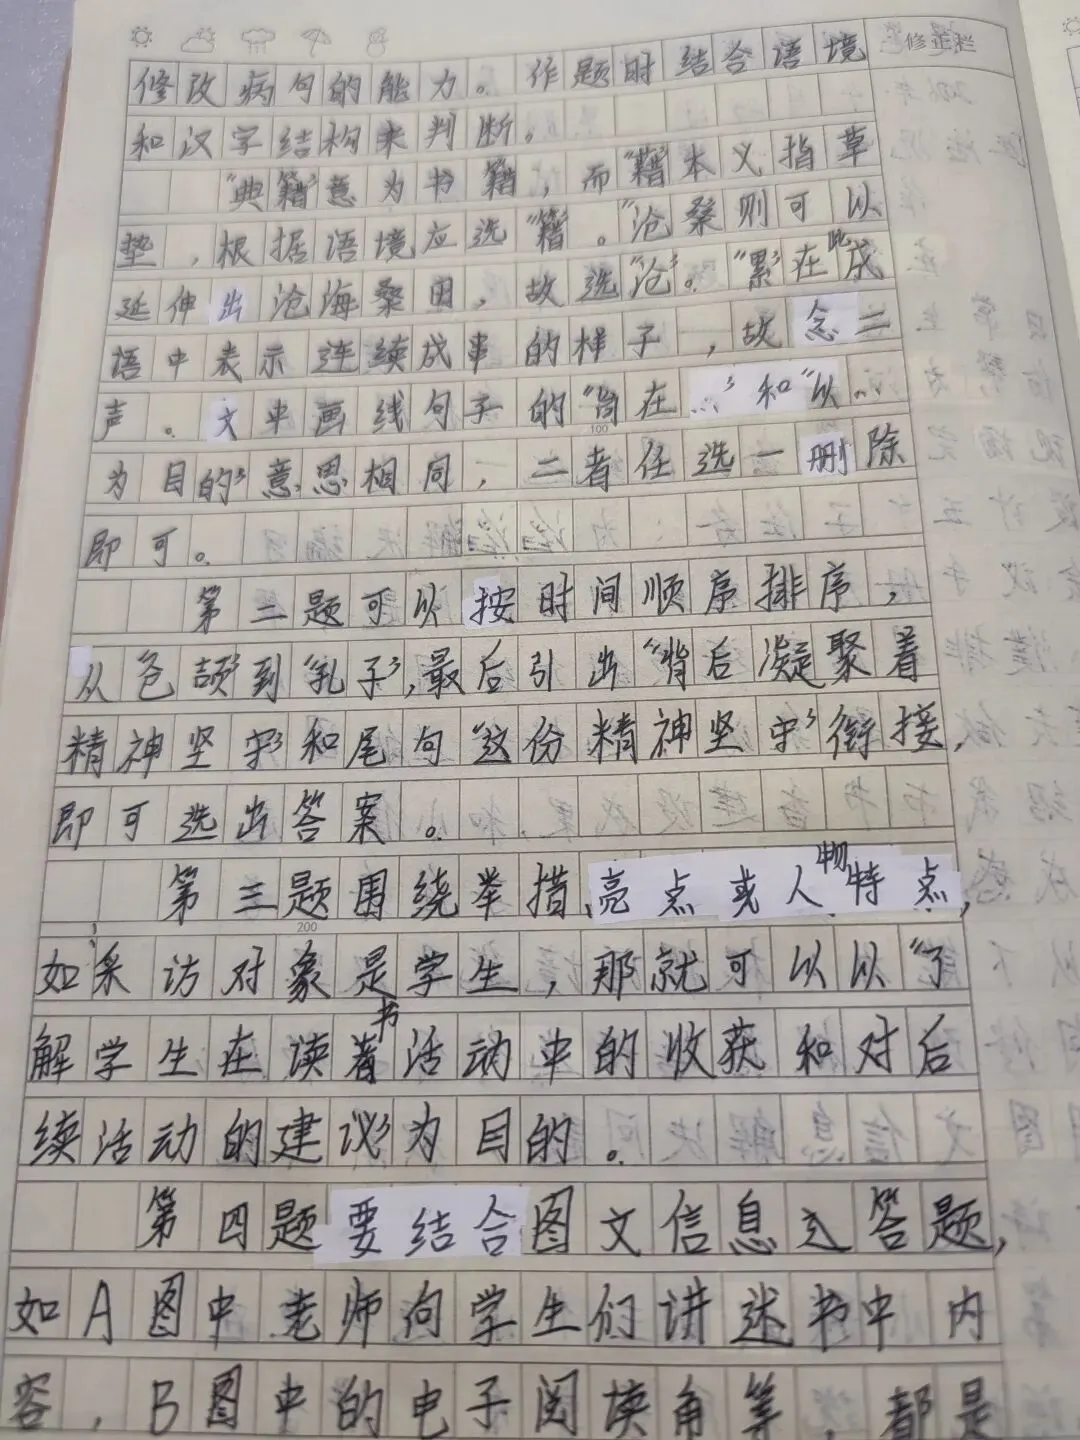 修正栏
修改病句的能力。作题时结合语境
和汉字结构来判断。
"典籍"意为书籍，而"藉"本义指草
垫，根据语境应选"籍"。"沧桑则可以
延伸出沧海桑田，故选"沧"。"累"在此成
语中表示连续成串的样子，故念二
声。文中画线句子的"旨在…"和"以…
为目的"意思相同，二者任选一删除
即可。
100
第二题可以按时间顺序排序，
从仓颉到"孔子"，最后引出"背后凝聚着
精神坚守"和尾句"这份精神坚守"衔接，
即可选出答案。
第三题围绕举措、亮点或人物特点，
200
如采访对象是学生，那就可以以"了
解学生在读书活动中的收获和对后
续活动的建议"为目的。
第四题要结合图文信息答题，
如A图中老师向学生们讲述书中内
容，B图中的电子阅读角等，都是